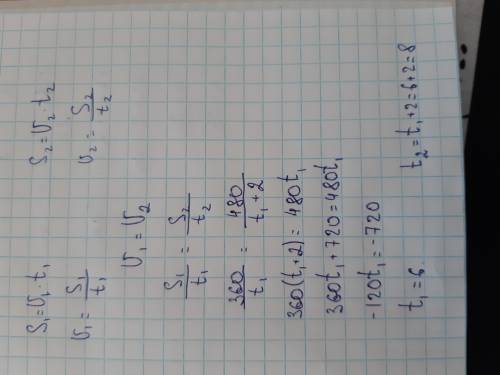 S₁=υ₁·t₁ S₂=υ₂·t₂
υ₁=S₁/t₁ υ₂=S₂/t₂
υ₁=υ₂
S₁/t₁=S₂/t₂
360/t₁=480/t₁+2
360(t₁+2)=480t₁
360t₁+720=480t₁
-120t₁=-720
t₁=6. t₂=t₁+2=6+2=8